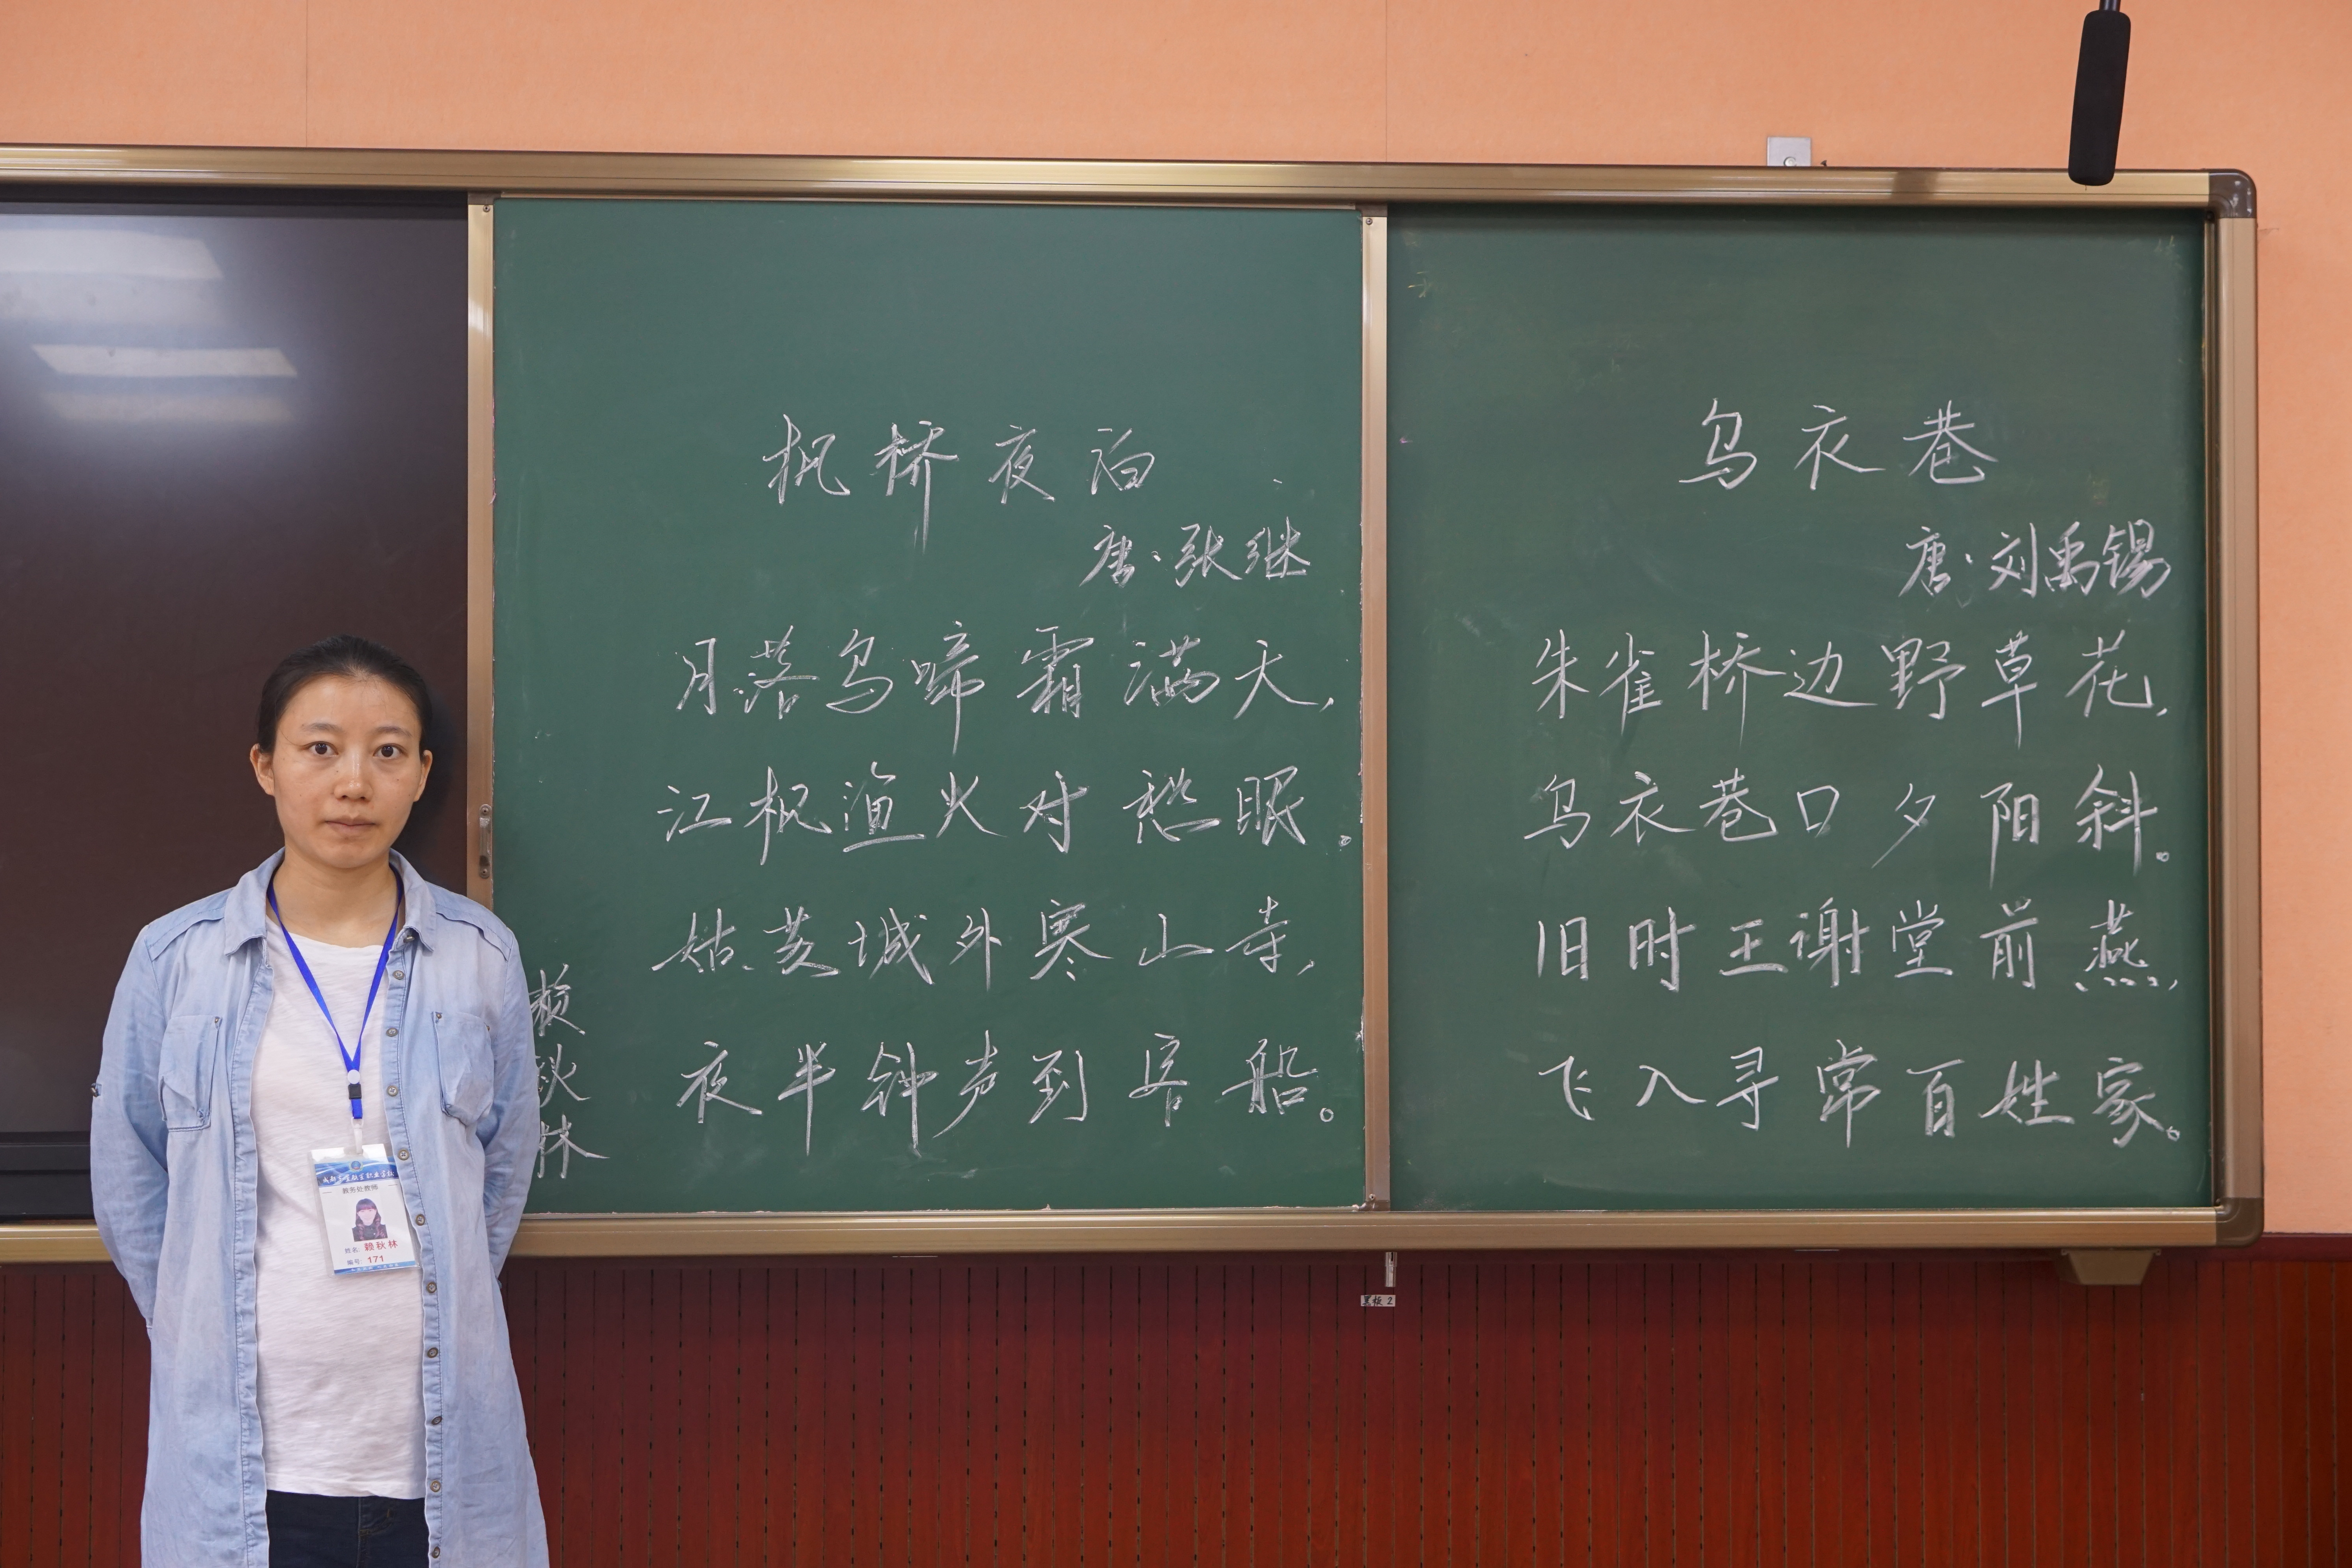 枫桥夜泊
唐·张继
月落乌啼霜满天,
江枫渔火对愁眠。
姑苏城外寒山寺,
夜半钟声到客船。
赖秋林
乌衣巷
唐·刘禹锡
朱雀桥边野草花,
乌衣巷口夕阳斜。
旧时王谢堂前燕,
飞入寻常百姓家。
教务处教师
姓名: 赖秋林
编号: 171
黑板 2